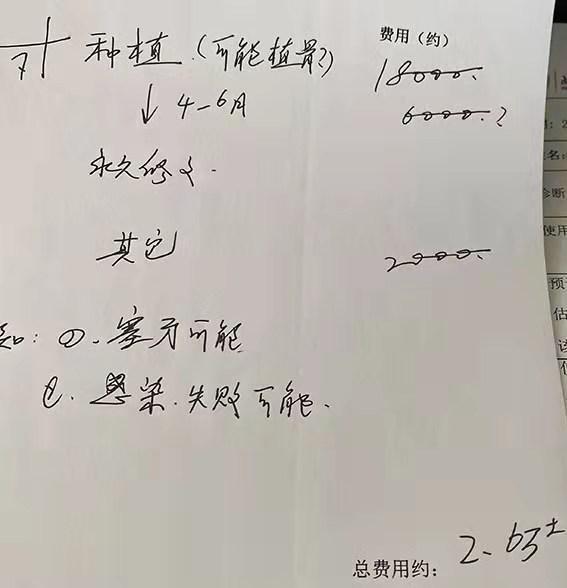 费用（约）
7 种植.（可能植骨？） 18000.
↓ 4-6月 6000.？
永久修复.
其它 2000.
知：①.塞牙可能
②.感染.失败可能.
总费用约： 2.6万±